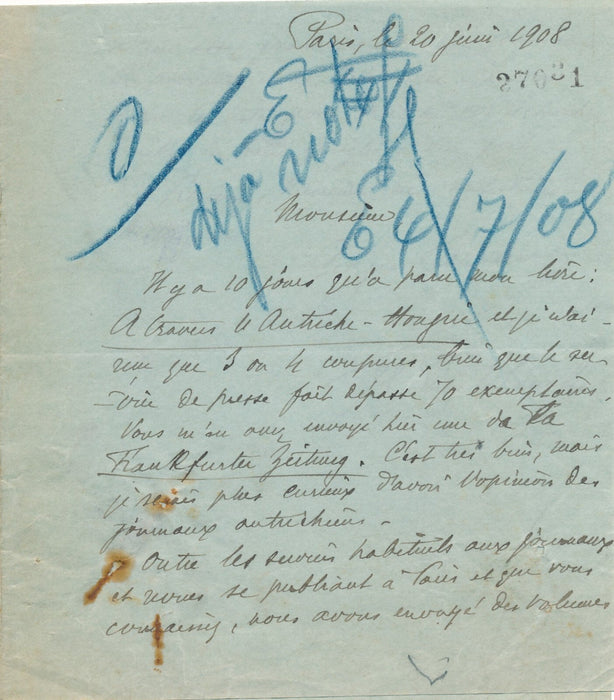 Paris, le 20 juin 1908
27031
déjà noté
E 4/7/08
Monsieur
Il y a 10 jours qu'a paru mon livre:
A travers l'Autriche-Hongrie et je n'ai
reçu que 3 ou 4 coupures, bien que le ser-
-vice de presse fait dépasse 70 exemplaires.
Vous m'en avez envoyé hier une de la
Frankfurter Zeitung. C'est très bien, mais
je serais plus curieux d'avoir l'opinion des
journaux autrichiens.
Outre les services habituels aux journaux
et revues se publiant à Paris et que vous
connaissez, nous avons envoyé des volumes